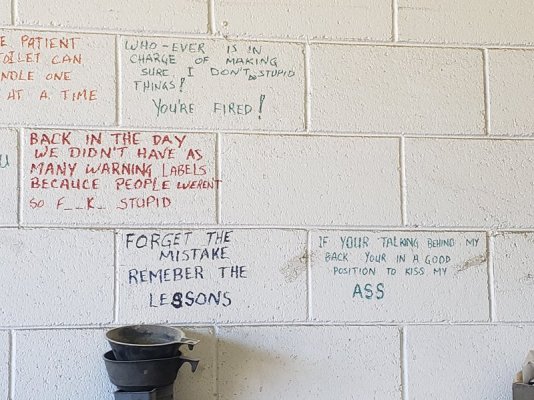 E PATIENT
OILET CAN
NDLE ONE
AT A TIME
WHO-EVER IS IN
CHARGE OF MAKING
SURE I DON'T DO STUPID
THINGS!
YOU'RE FIRED!
U
BACK IN THE DAY
WE DIDN'T HAVE AS
MANY WARNING LABELS
BECAUCE PEOPLE WERENT
SO F__K_ STUPID
FORGET THE
MISTAKE
REMEBER THE
LESSONS
IF YOUR TALKING BEHIND MY
BACK YOUR IN A GOOD
POSITION TO KISS MY
ASS